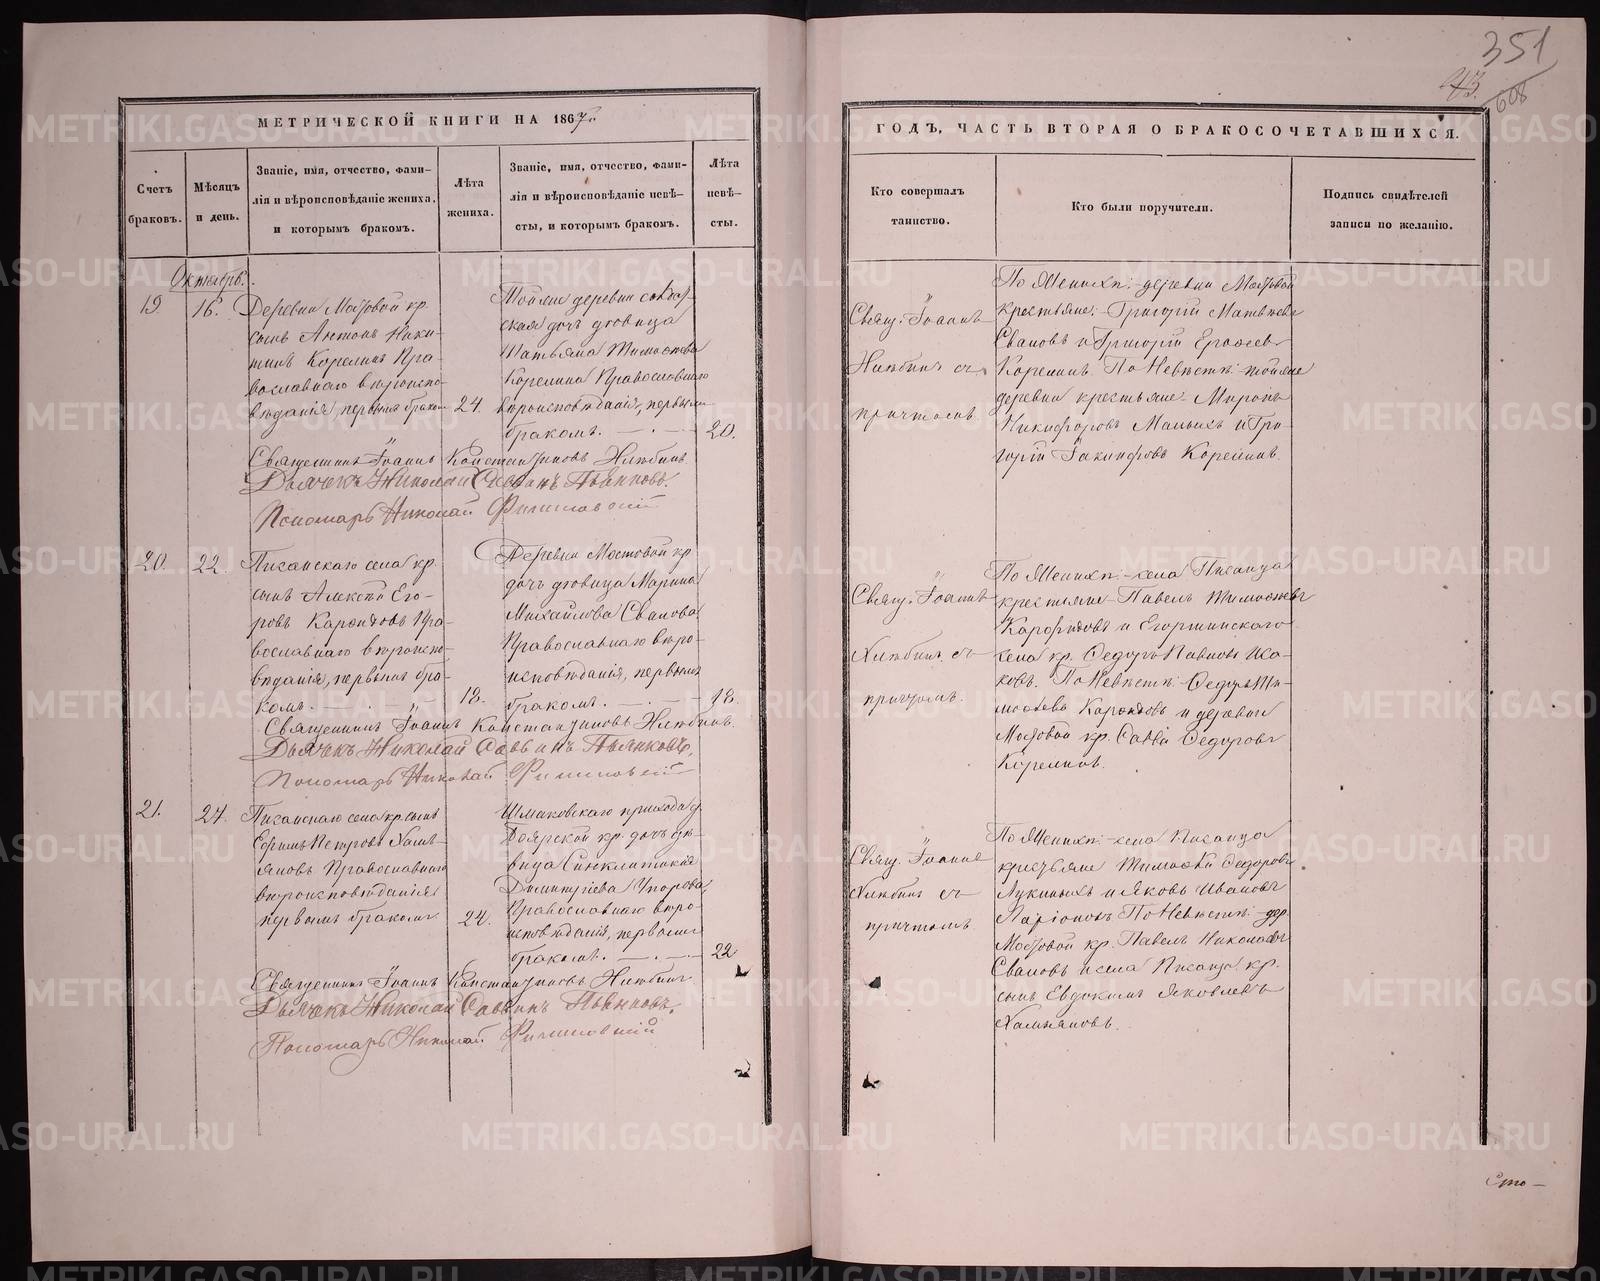 351
608
МЕТРИЧЕСКОЙ КНИГИ НА 1867.
Счетъ
браковъ.
Мѣсяцъ
и день.
Званіе, имя, отчество, фами-
лія и вѣроисповѣданіе жениха,
и которымъ бракомъ.
Лѣта
жениха.
Званіе, имя, отчество, фами-
лія и вѣроисповѣданіе невѣ-
сты, и которымъ бракомъ.
Лѣта
невѣ-
сты.
Октябрь.
19.
16.
Деревни Мостовой кр.
сынъ Антонъ Ники-
тинъ Корелинъ Пра-
вославнаго вѣроиспо-
вѣданія, первымъ бракомъ
24.
Тойже деревни
дочь дѣвица
Татьяна Тимоѳеева
Корелина Православнаго
вѣроисповѣданія, первымъ
бракомъ.
20.
Священникъ Іоаннъ Константиновъ
Дьячекъ Николай Саввинъ Пьянковъ.
Пономарь Николай
20.
22.
Писанскаго села кр.
сынъ Алексѣй Его-
ровъ Пра-
вославнаго вѣроиспо-
вѣданія, первымъ бра-
комъ.
18.
Деревни Мостовой кр.
дочь дѣвица Марина
Михайлова Свалова
Православнаго вѣро-
исповѣданія, первымъ
бракомъ.
18.
Священникъ Іоаннъ Константиновъ
Дьячекъ Николай Саввинъ Пьянковъ,
Пономарь Николай
21.
24.
Писанскаго села кр. сынъ
Ефимъ Петровъ Халь-
яновъ Православнаго
вѣроисповѣданія
первымъ бракомъ
24.
Шмаковскаго прихода д.
Боярской кр. дочь дѣ-
вица Синклитикія
Димитріева Упорова,
Православнаго вѣро-
исповѣданія, первымъ
бракомъ.
22
Священникъ Іоаннъ Константиновъ
Дьячекъ Николай Саввинъ Пьянковъ.
Пономарь Николай
ГОДЪ, ЧАСТЬ ВТОРАЯ О БРАКОСОЧЕТАВШИХСЯ.
Кто совершалъ
таинство.
Кто были поручители.
Подпись свидѣтелей
записи по желанію.
Свящ. Іоаннъ
съ
причтомъ.
По Женихѣ: деревни Мостовой
крестьяне: Григорій Матвѣевъ
Сваловъ и Григорій
Корелинъ. По Невѣстѣ: тойже
деревни крестьяне Миронъ
Никифоровъ Маньковъ и Гри-
горій Іакинфовъ Корелинъ.
Свящ. Іоаннъ
съ
причтомъ.
По Женихѣ: села Писанца
крестьяне Павелъ Тимоѳеевъ
и Егоршинскаго
села кр. Ѳедоръ Павловъ Иса-
ковъ. По Невѣстѣ: Ѳедоръ Ти-
моѳеевъ и деревни
Мостовой кр. Савва Ѳедоровъ
Корелинъ.
Свящ. Іоаннъ
съ
причтомъ.
По Женихѣ: села Писанца
крестьяне Тимоѳей Ѳедоровъ
Лукиныхъ и Яковъ Ивановъ
Ларіоновъ По Невѣстѣ: дер.
Мостовой кр. Павелъ Николаевъ
Сваловъ и села Писанца кр.
сынъ Евдокимъ Яковлевъ
Хальяновъ.
Сто-
METRIKI.GASO-URAL.RU